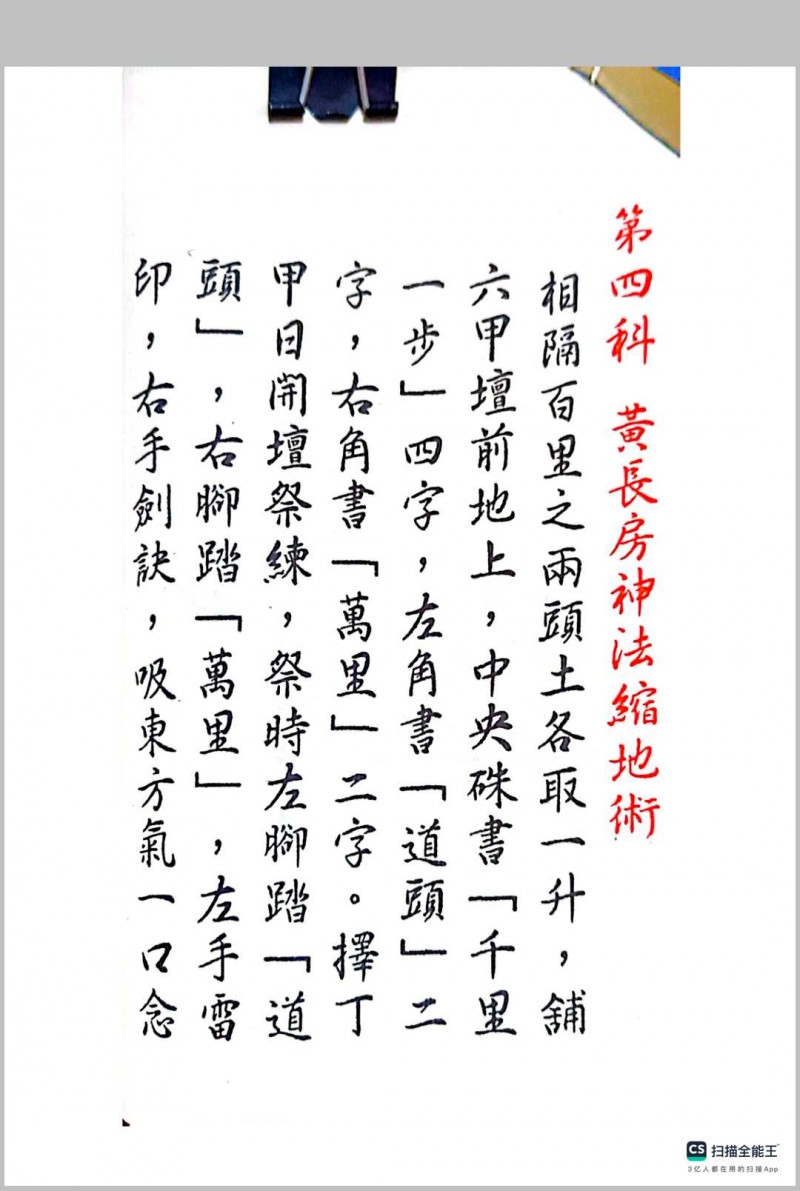 第四科 黃長房神法縮地術
相隔百里之兩頭土各取一升，舖
六甲壇前地上，中央硃書「千里
一步」四字，左角書「道頭」二
字，右角書「萬里」二字。擇丁
甲日開壇祭練，祭時左腳踏「道
頭」，右腳踏「萬里」，左手雷
印，右手劍訣，吸東方氣一口念
CS 扫描全能王
3亿人都在用的扫描App